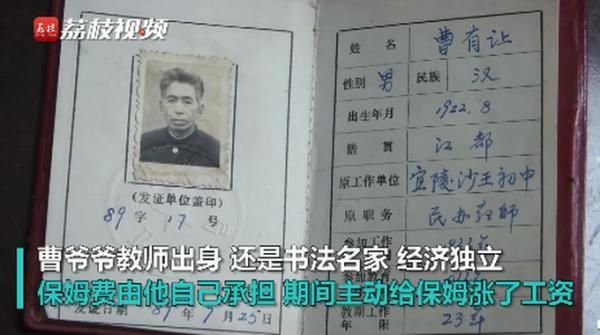 荔枝 荔枝视频
(发证单位盖印)
89 字 17 号
姓名 曹有让
性别 男 民族 汉
出生年月 1922.8
籍贯 江都
原工作单位 宜陵沙王初中
原职务 民办教师
参加工作
教工作
年限 23年
曹爷爷教师出身 还是书法名家 经济独立
保姆费由他自己承担 期间主动给保姆涨了工资